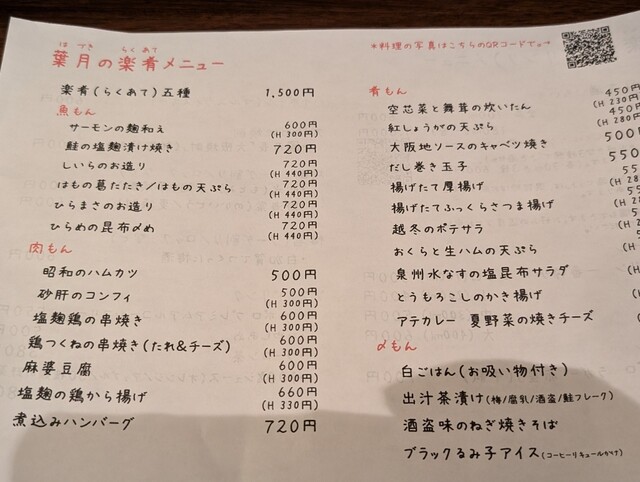 はづき らくあて
葉月の楽肴メニュー
*料理の写真はこちらのQRコードで。→
楽肴(らくあて)五種 1,500円
魚もん
サーモンの麹和え 600円
(H 300円)
鮭の塩麹漬け焼き 720円
しいらのお造り 720円
(H 440円)
はもの葛たたき/はもの天ぷら 720円
(H 440円)
ひらまさのお造り 720円
(H 440円)
ひらめの昆布〆め 720円
(H 440円)
肉もん
昭和のハムカツ 500円
砂肝のコンフィ 500円
(H 300円)
塩麹鶏の串焼き 600円
(H 300円)
鶏つくねの串焼き(たれ&チーズ) 600円
(H 300円)
麻婆豆腐 600円
(H 300円)
塩麹の鶏から揚げ 660円
(H 330円)
煮込みハンバーグ 720円
肴もん
空芯菜と舞茸の炊いたん 450円
(H 230円)
紅しょうがの天ぷら 450円
(H 280円)
大阪地ソースのキャベツ焼き 500円
だし巻き玉子 550
揚げたて厚揚げ 55
揚げたてふっくらさつま揚げ
越冬のポテサラ
おくらと生ハムの天ぷら
泉州水なすの塩昆布サラダ
とうもろこしのかき揚げ
アテカレー 夏野菜の焼きチーズ
〆もん
白ごはん(お吸い物付き)
出汁茶漬け(梅/腐乳/酒盗/鮭フレーク)
酒盗味のねぎ焼きそば
ブラックるみ子アイス(コーヒーリキュールがけ)